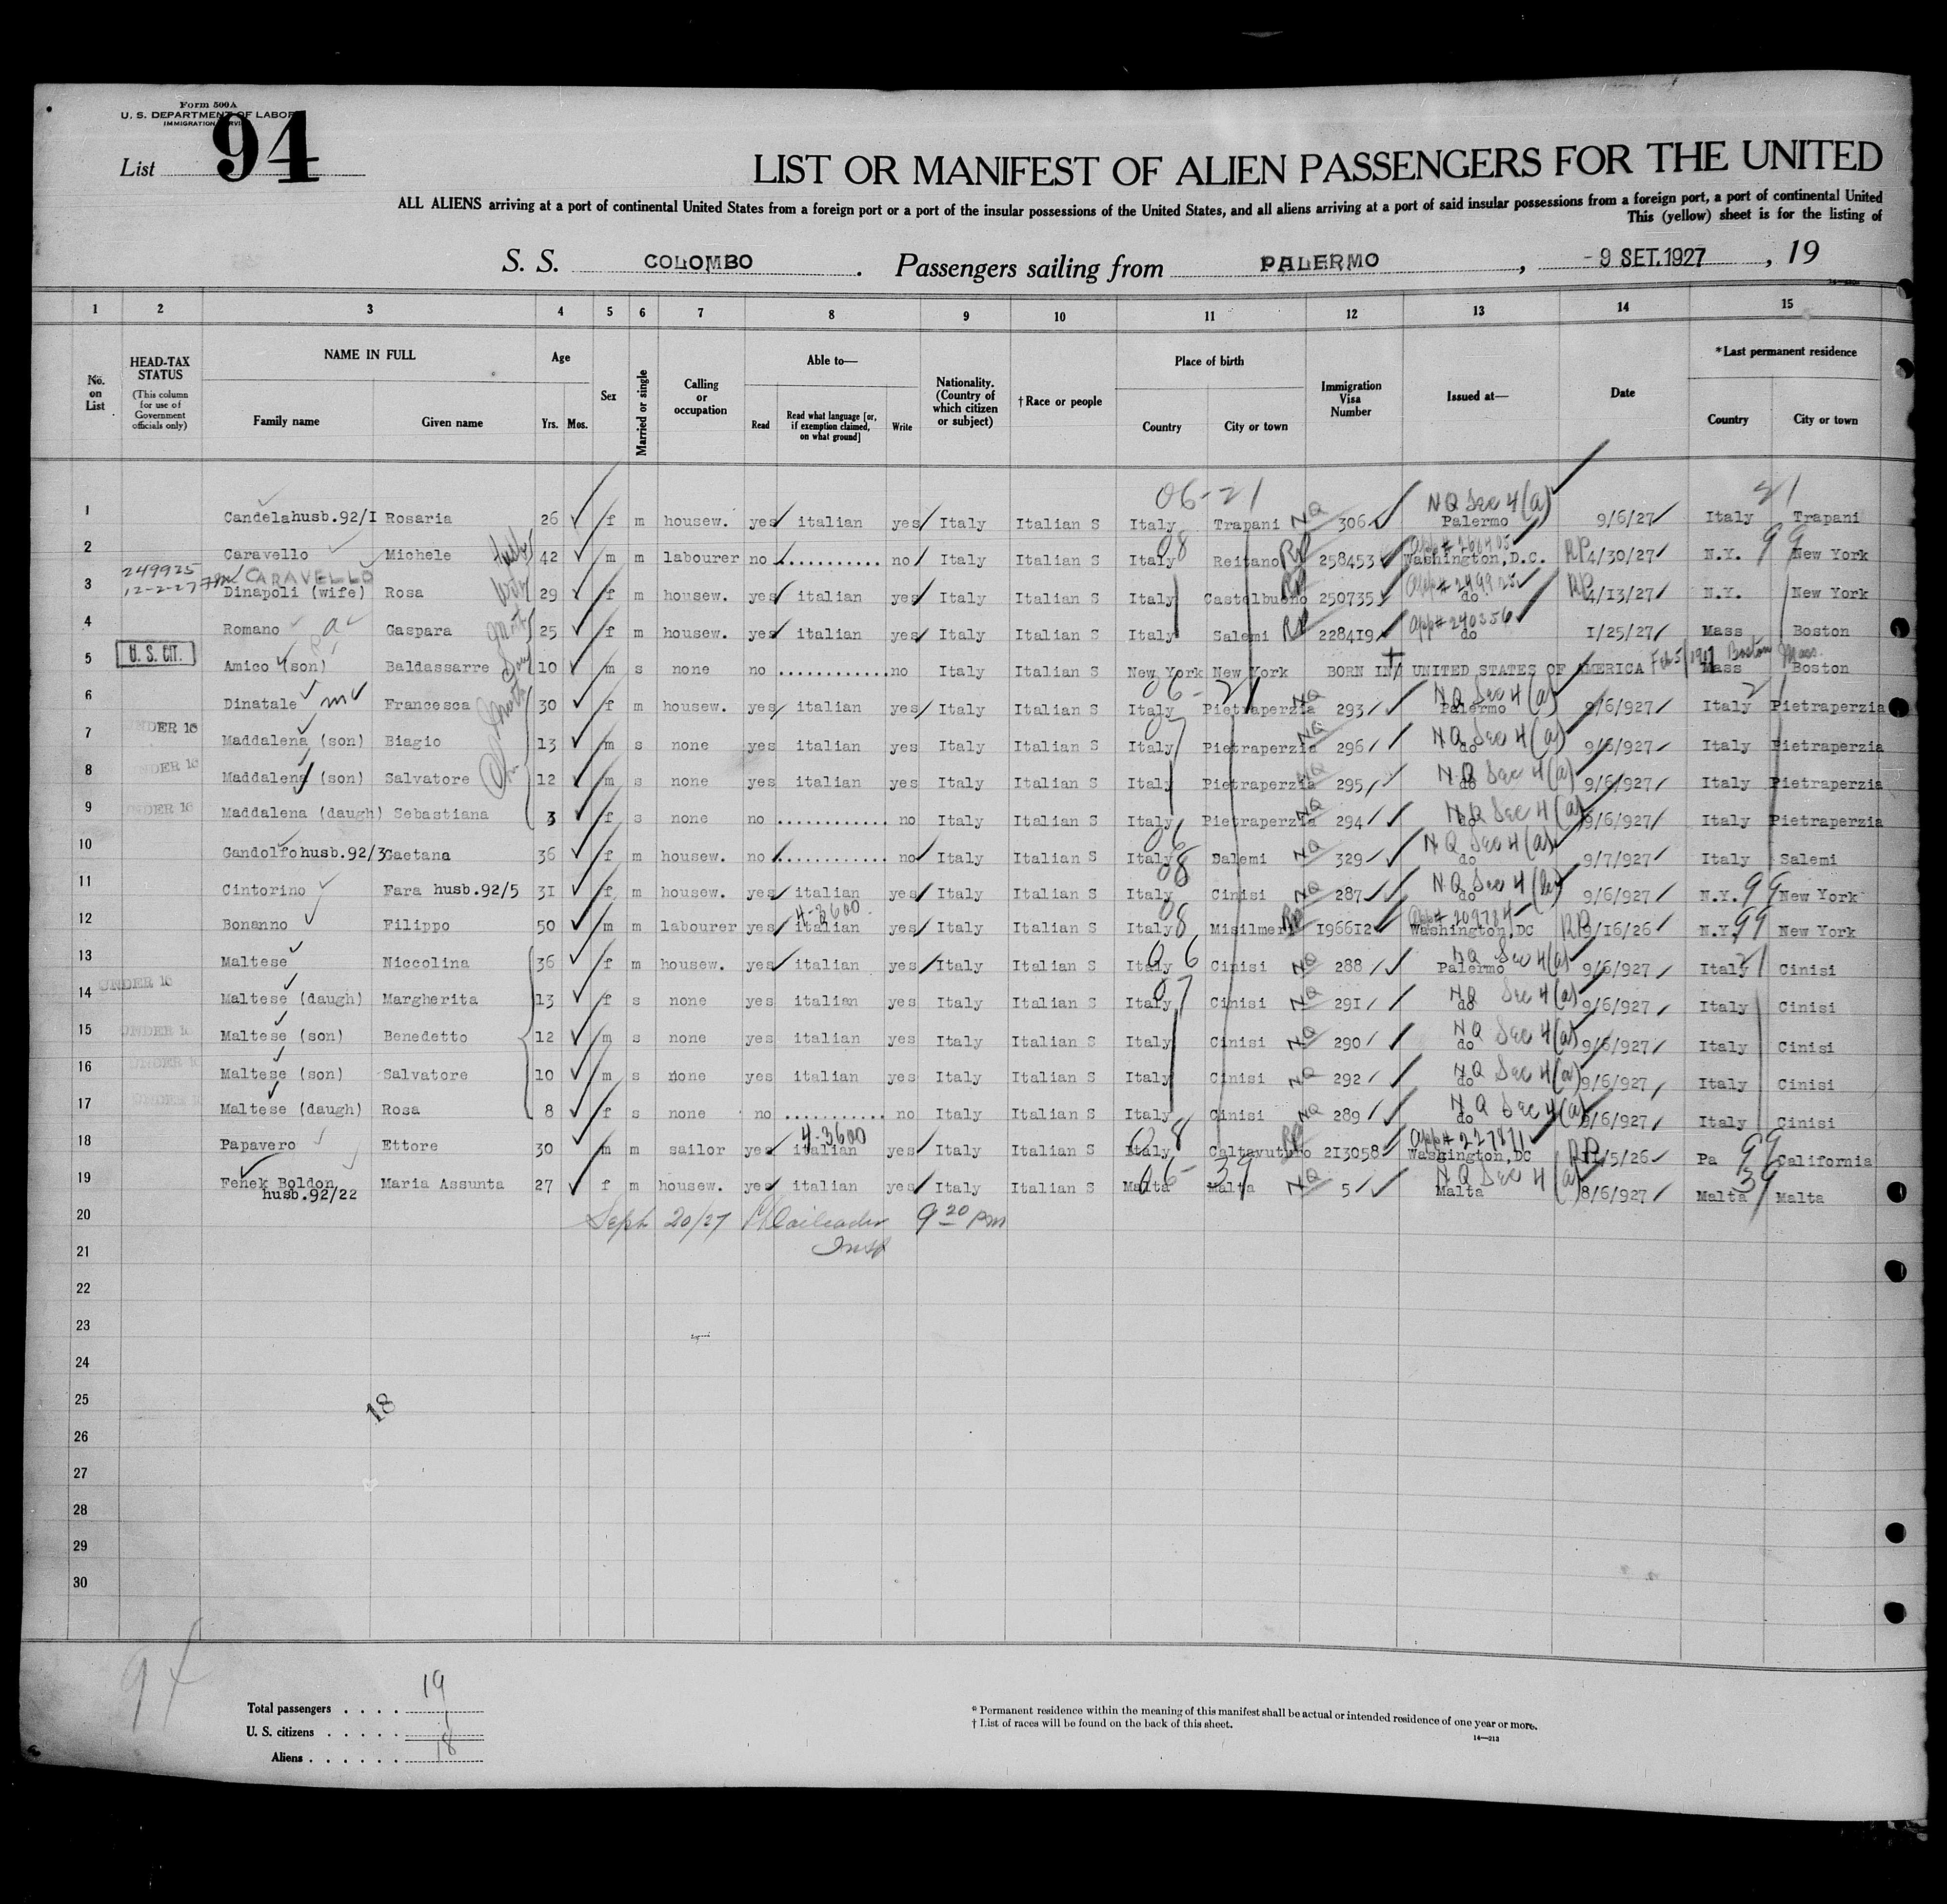 Form 500A
U. S. DEPARTMENT OF LABOR
IMMIGRATION SERVICE
List 94
LIST OR MANIFEST OF ALIEN PASSENGERS FOR THE UNITED
ALL ALIENS arriving at a port of continental United States from a foreign port or a port of the insular possessions of the United States, and all aliens arriving at a port of said insular possessions from a foreign port, a port of continental United
This (yellow) sheet is for the listing of
S. S. COLOMBO. Passengers sailing from PALERMO, -9 SET.1927, 19
1 2 3 4 5 6 7 8 9 10 11 12 13 14 15
No. on List
HEAD-TAX STATUS
(This column for use of Government officials only)
NAME IN FULL
Family name Given name
Age
Yrs. Mos.
Sex
Married or single
Calling or occupation
Able to—
Read
Read what language [or, if exemption claimed, on what ground]
Write
Nationality. (Country of which citizen or subject)
†Race or people
Place of birth
Country City or town
Immigration Visa Number
Issued at—
Date
*Last permanent residence
Country City or town
06-21 NQ Sec 4(a) 21
1 Candela husb.92/I Rosaria 26 f m housew. yes italian yes Italy Italian S Italy Trapani NQ 306 Palermo 9/6/27 Italy Trapani
2 Caravello Michele 42 m m labourer no ........... no Italy Italian S Italy Reitano RP 258453 Washington,D.C. RP 4/30/27 N.Y. 99 New York
249925
12-2-27 CARAVELLO
3 Dinapoli (wife) Rosa Wife 29 f m housew. yes italian yes Italy Italian S Italy Castelbuono RP 250735 App# 249925 do RP 4/13/27 N.Y. New York
4 Romano Gaspara 25 f m housew. yes italian yes Italy Italian S Italy Salemi RP 228419 App# 240356 do I/25/27 Mass Boston
U. S. CIT.
5 Amico (son) Baldassarre Son 10 m s none no ............ no Italy Italian S New York New York BORN IN UNITED STATES OF AMERICA Feb 5/1917 Boston Mass. Mass Boston
6 Dinatale Francesca 30 f m housew. yes italian yes Italy Italian S Italy Pietraperzia NQ 293 NQ Sec 4(a) Palermo 9/6/927 Italy Pietraperzia
UNDER 16
7 Maddalena (son) Biagio 13 m s none yes italian yes Italy Italian S Italy Pietraperzia NQ 296 NQ Sec 4(a) do 9/6/927 Italy Pietraperzia
UNDER 16
8 Maddalena (son) Salvatore 12 m s none yes italian yes Italy Italian S Italy Pietraperzia NQ 295 NQ Sec 4(a) do 9/6/927 Italy Pietraperzia
UNDER 16
9 Maddalena (daugh) Sebastiana 3 f s none no ............ no Italy Italian S Italy Pietraperzia NQ 294 NQ Sec 4(a) do 9/6/927 Italy Pietraperzia
10 Gandolfo husb.92/3 Gaetana 36 f m housew. no ............ no Italy Italian S Italy Salemi NQ 329 NQ Sec 4(a) do 9/7/927 Italy Salemi
11 Cintorino Fara husb.92/5 31 f m housew. yes italian yes Italy Italian S Italy Cinisi NQ 287 NQ Sec 4 do 9/6/927 N.Y. 99 New York
4-3600
12 Bonanno Filippo 50 m m labourer yes italian yes Italy Italian S Italy 08 Misilmeri RP 196612 App# 209784 Washington,DC RP 9/16/26 N.Y. 99 New York
13 Maltese Niccolina 36 f m housew. yes italian yes Italy Italian S Italy Cinisi NQ 288 NQ Sec 4(a) Palermo 9/6/927 Italy Cinisi
UNDER 16
14 Maltese (daugh) Margherita 13 f s none yes italian yes Italy Italian S Italy Cinisi NQ 291 NQ Sec 4(a) do 9/6/927 Italy Cinisi
UNDER 16
15 Maltese (son) Benedetto 12 m s none yes italian yes Italy Italian S Italy Cinisi NQ 290 NQ Sec 4(a) do 9/6/927 Italy Cinisi
UNDER 16
16 Maltese (son) Salvatore 10 m s none yes italian yes Italy Italian S Italy Cinisi NQ 292 NQ Sec 4(a) do 9/6/927 Italy Cinisi
UNDER 16
17 Maltese (daugh) Rosa 8 f s none no ........... no Italy Italian S Italy Cinisi NQ 289 NQ Sec 4(a) do 9/6/927 Italy Cinisi
4-3600
18 Papavero Ettore 30 m m sailor yes italian yes Italy Italian S Italy 08 Caltavuturo RP 213058 App# 227871 Washington,DC RP /5/26 Pa 99 California
19 Fenek Boldon Maria Assunta 27 f m housew. yes italian yes Italy Italian S Malta Malta NQ 5 NQ Sec 4(a) Malta 8/6/927 Malta Malta
husb.92/22
20 Sept 20/27 9 20 PM
21 Insp
22
23
24
25
18
26
27
28
29
30
94
Total passengers . . . . 19
U. S. citizens . . . . . 1
Aliens . . . . . . 18
* Permanent residence within the meaning of this manifest shall be actual or intended residence of one year or more.
† List of races will be found on the back of this sheet.
14—213